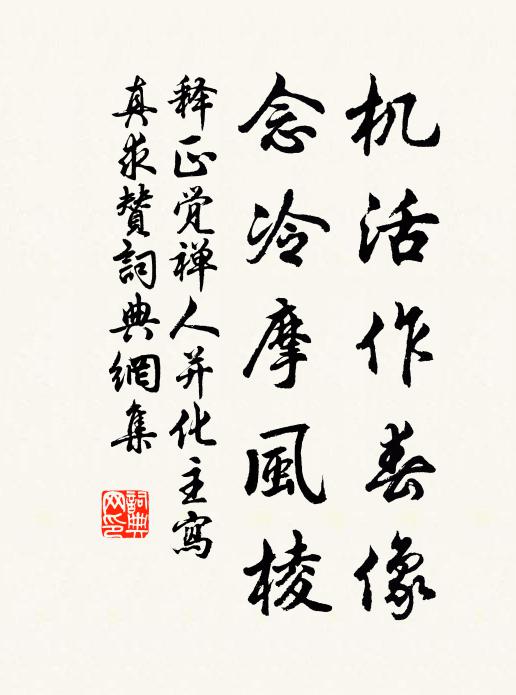 机活作春像
念冷摩風棱
释正觉禅人并化主寫
真求赞詞典網集
詞典網印